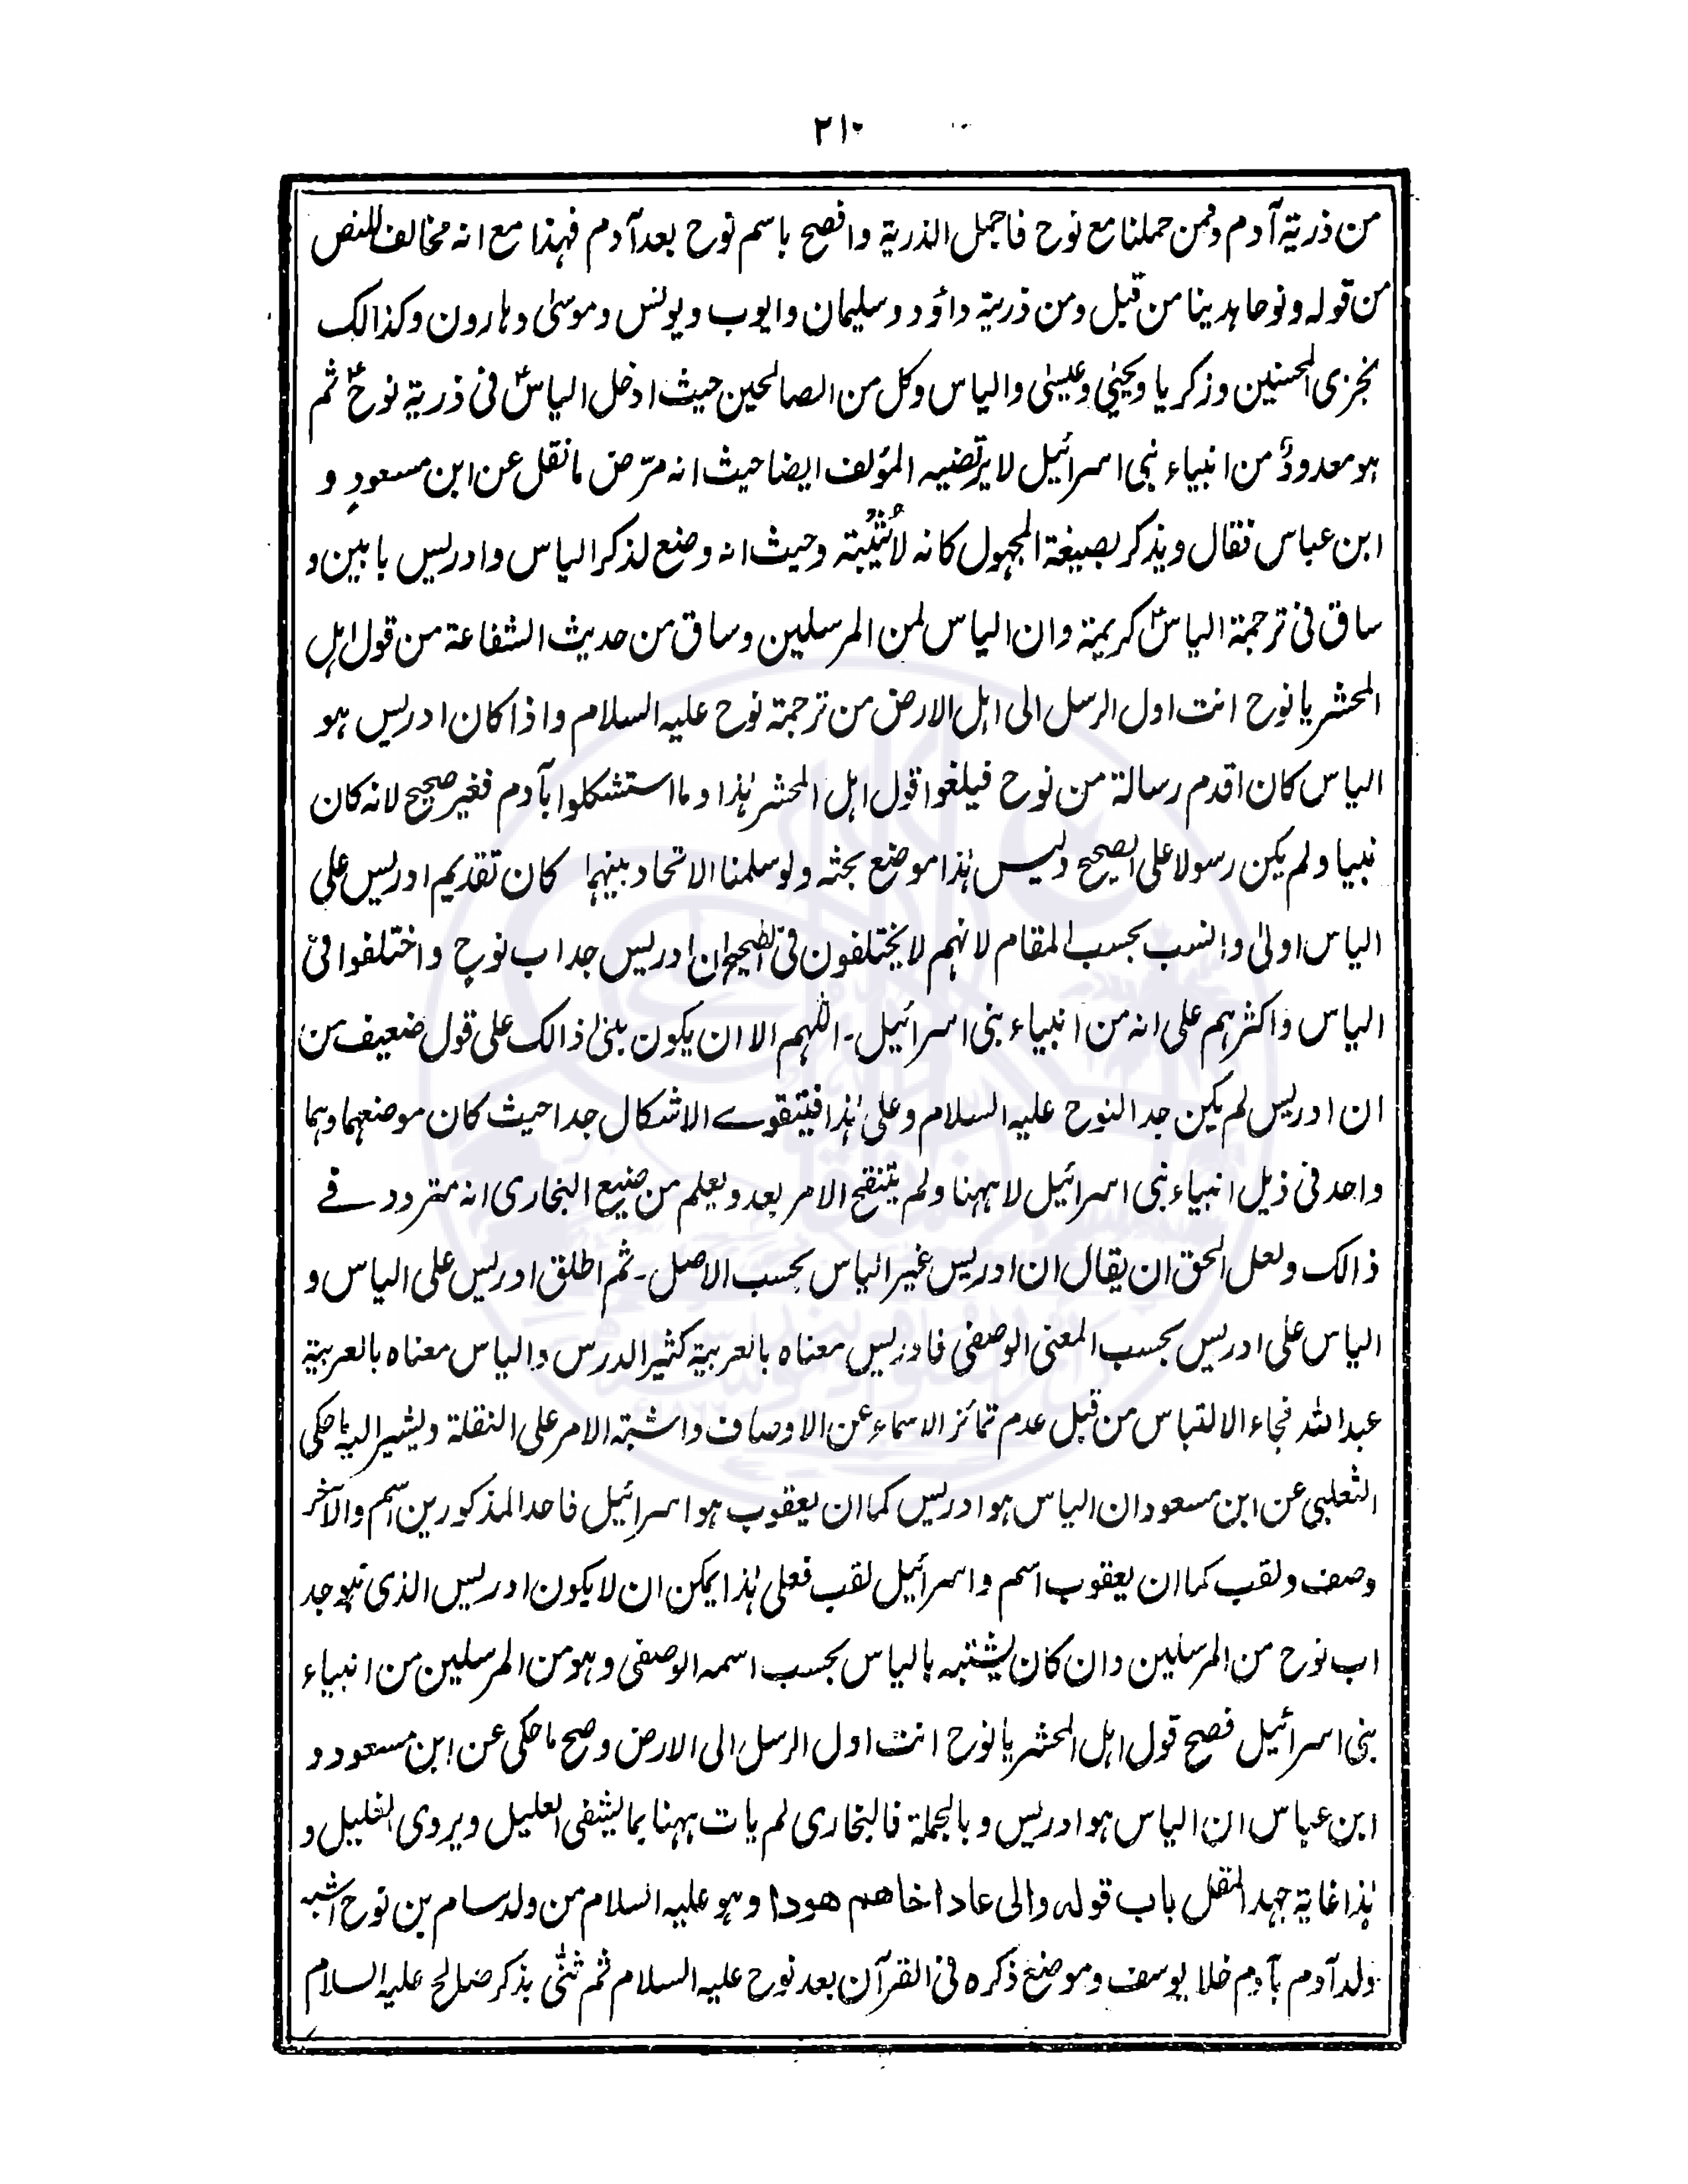 ۲۱۰
من ذرية آدم وممن حملنا مع نوح فاجمل الذرية وافصح باسم نوح بعد آدم فهذا مع انه مخالف للنص
من قوله ونوحا هدينا من قبل ومن ذريته داؤد وسليمان وايوب ويونس وموسىٰ وهارون وكذالك
نجزى المحسنين وزكريا ويحيىٰ وعيسىٰ والياس وكل من الصالحين حيث ادخل الياسؑ فى ذرية نوحؑ ثم
هو معدودٌ من انبياء بنى اسرائيل لا يرتضيه المؤلف ايضا حيث انه مرّض ما نقل عن ابن مسعودٍ و
ابن عباس فقال ويذكر بصيغة المجهول كانه لا يُثْبِتُه وحيث انه وضع لذكر الياس وادريس بابين و
ساق فى ترجمة الياسؑ كريمة وان الياس لمن المرسلين وساق من حديث الشفاعة من قول اهل
المحشر يا نوح انت اول الرسل الى اهل الارض من ترجمة نوح عليه السلام واذا كان ادريس هو
الياس كان اقدم رسالة من نوح فيلغوا قول اهل المحشر هٰذا وما استشكلوا بآدم فغير صحيح لانه كان
نبيا ولم يكن رسولا على الصحيح وليس هٰذا موضع بحثه ولو سلمنا الاتحاد بينهما كان تقديم ادريس على
الياس اولىٰ وانسب بحسب المقام لانهم لا يختلفون فى الصحيح ان ادريس جد اب نوح واختلفوا فى
الياس واكثرهم على انه من انبياء بنى اسرائيل۔ اللهم الا ان يكون بنىٰ ذالك على قول ضعيف من
ان ادريس لم يكن جد النوح عليه السلام وعلى هٰذا فيتقوے الاشكال جدا حيث كان موضعهما وهما
واحد فى ذيل انبياء بنى اسرائيل لا ههنا ولم يتنقح الامر بعد ويعلم من صنيع البخارى انه متردد فے
ذالك ولعل الحق ان يقال ان ادريس غير الياس بحسب الاصل۔ ثم اطلق ادريس على الياس و
الياس على ادريس بحسب المعنى الوصفى فادريس معناه بالعربية كثير الدرس والياس معناه بالعربية
عبد الله فجاء الالتباس من قبل عدم تمائز الاسماء عن الاوصاف واشتبه الامر على النقلة ويشير اليه ما حكى
الثعلبى عن ابن مسعود ان الياس هو ادريس كما ان يعقوب هو اسرائيل فاحد المذكورين اسم والآخر
وصف ولقب كما ان يعقوب اسم واسرائيل لقب فعلى هٰذا يمكن ان لا يكون ادريس الذى هو جد
اب نوح من المرسلين وان كان يشتبه بالياس بحسب اسمه الوصفى وهو من المرسلين من انبياء
بنى اسرائيل فصح قول اهل المحشر يا نوح انت اول الرسل الى الارض وصح ما حكى عن ابن مسعود و
ابن عباس ان الياس هو ادريس وبالجملة فالبخارى لم يات ههنا بما يشفى العليل ويروى الغليل و
هٰذا غاية جهد المقل باب قوله والى عاد اخاهم هودا وهو عليه السلام من ولد سام بن نوح اشبه
ولد آدم بآدم خلا يوسف وموضع ذكره فى القرآن بعد نوح عليه السلام ثم ثنّٰى بذكر صالح عليه السلام